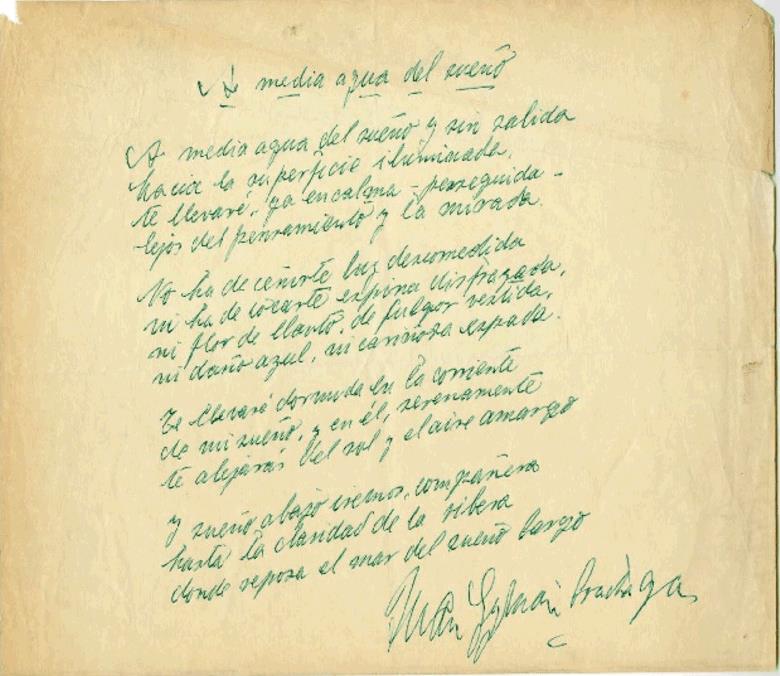 A media agua del sueño
A media agua del sueño y sin salida
hacia la superficie iluminada,
te llevaré, ya en calma - perseguida -
lejos del pensamiento y la mirada.
No ha de ceñirte luz descomedida
ni ha de tocarte espina disfrazada,
ni flor de llanto, de fulgor vestida,
ni daño azul, ni cariñosa espada.
Te llevaré dormida en la corriente
de mi sueño, y en él, serenamente
te alejarás del sol y el aire amargo
y sueño abajo iremos, compañera
hasta la claridad de la ribera
donde reposa el mar del sueño largo
Juan Guzmán Cruchaga